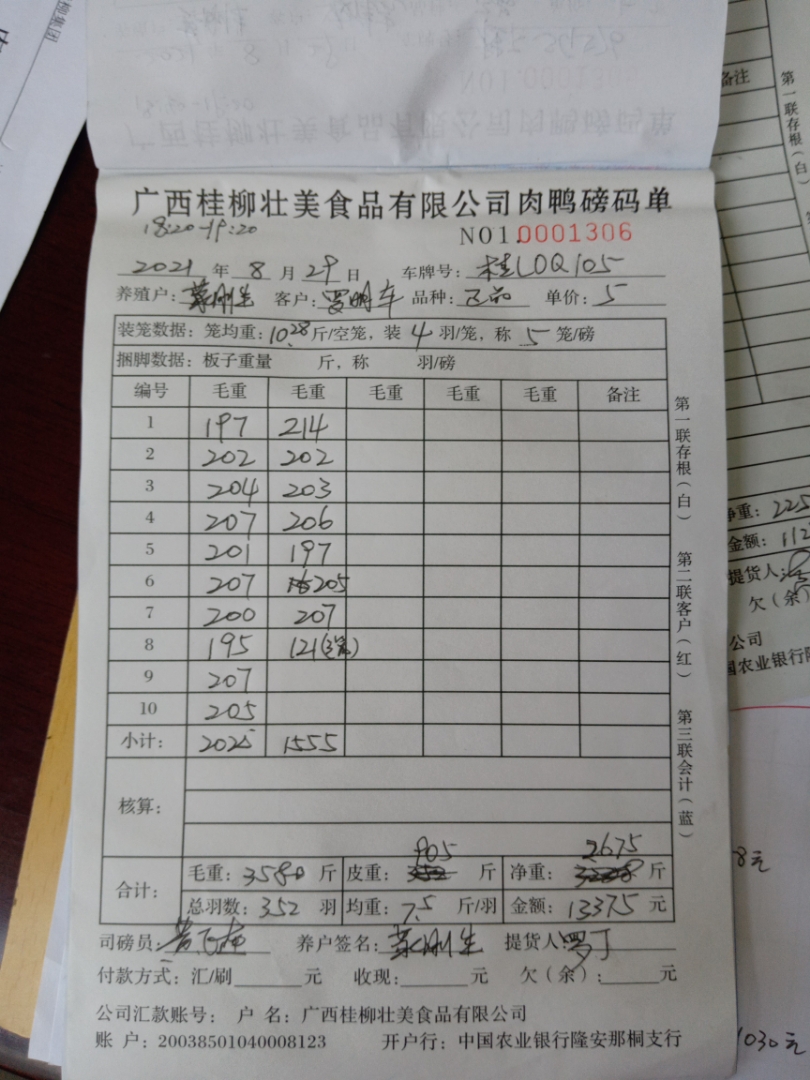 广西桂柳壮美食品有限公司肉鸭磅码单
18:20-19:20
NO1.0001306
2021年8月29日 车牌号：桂LDQ105
养殖户：蒙刚生 客户： 品种：正品 单价：5
装笼数据：笼均重：10.28斤/空笼，装4羽/笼，称5笼/磅
捆脚数据：板子重量 斤，称 羽/磅
编号 毛重 毛重 毛重 毛重 毛重 备注
1 197 214
2 202 202
3 204 203
4 207 206
5 201 197
6 207 205
7 200 207
8 195 121(3笼)
9 207
10 205
小计： 2025 1555
核算：
905 2675
合计： 毛重：3580斤 皮重：352斤 净重：斤
总羽数：352羽 均重：7.5斤/羽 金额：13375元
司磅员： 养户签名：蒙刚生 提货人：罗丁
付款方式：汇/刷______元 收现：______元 欠（余）：______元
公司汇款账号： 户 名：广西桂柳壮美食品有限公司
账 户：20038501040008123 开户行：中国农业银行隆安那桐支行
第一联存根（白）
第二联客户（红）
第三联会计（蓝）
备注
第一联存根（白）
净重：225
金额：112
提货人：
欠（余）
公司
国农业银行隆
8元
1030元